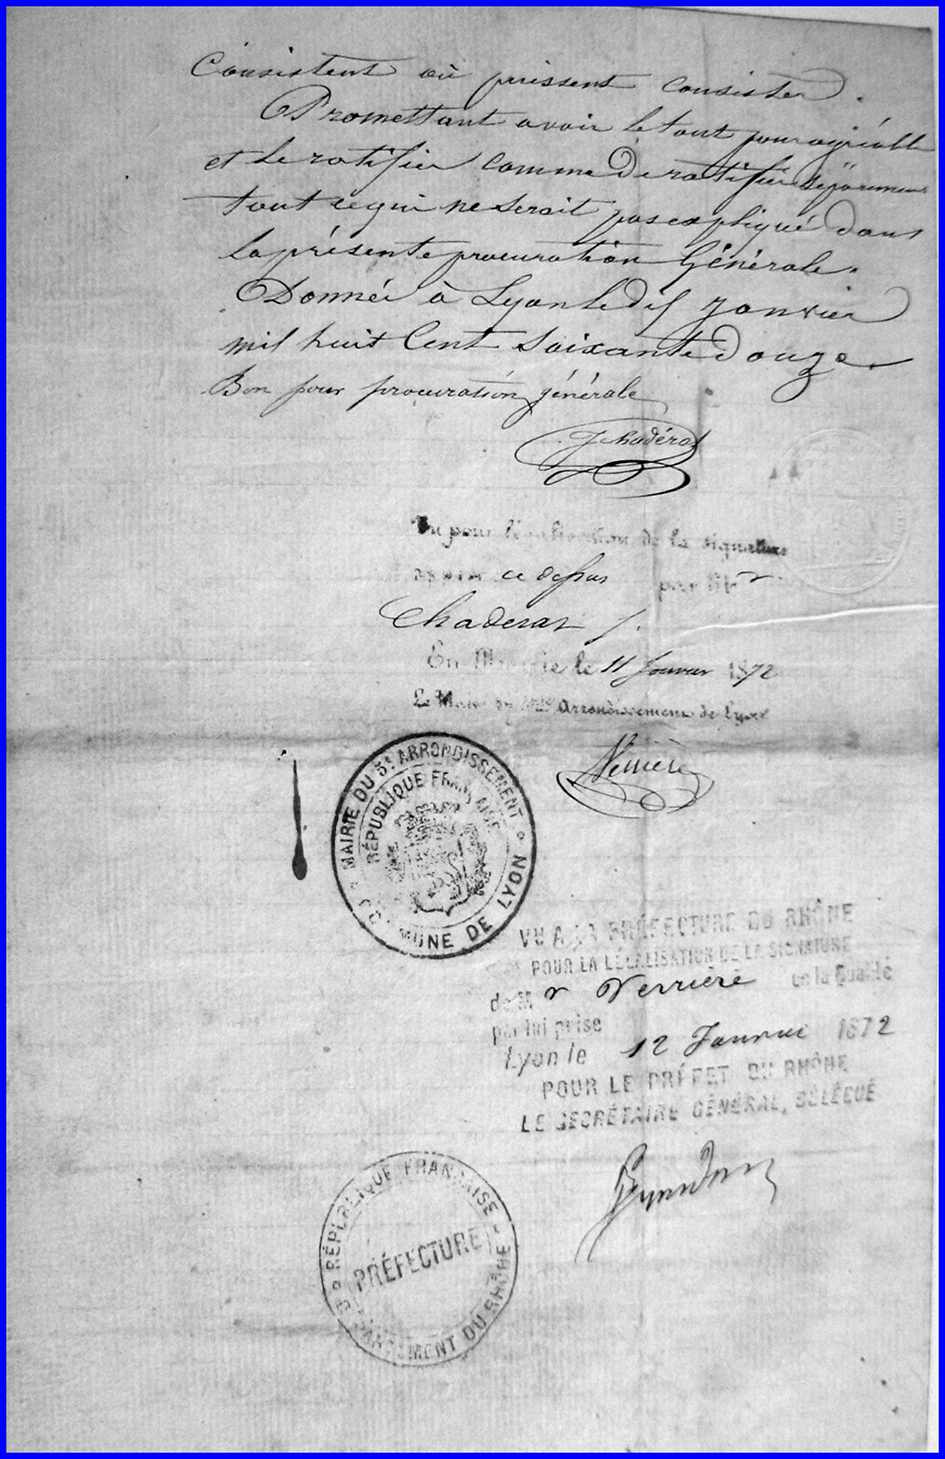 Consistent où puissent consister.
Promettant avoir le tout pour agréable
et le ratifier comme de ratifier
tout ce qui ne serait pas expliqué dans
la présente procuration Générale.
Donnée à Lyon le dix Janvier
mil huit Cent Soixante Douze.
Bon pour procuration générale
J Chadérat
Vu pour légalisation de la signature
apposée ce dessus par Mr
Chaderat J.
En Mairie le 11 Janvier 1872
Le Maire du Arrondissement de Lyon
Verrière
MAIRIE DU 5e ARRONDISSEMENT
RÉPUBLIQUE FRANÇAISE
COMMUNE DE LYON
VU A LA PRÉFECTURE DU RHÔNE
POUR LA LÉGALISATION DE LA SIGNATURE
de Mr Verrière en la Qualité
par lui prise
Lyon le 12 Janvier 1872
POUR LE PRÉFET DU RHÔNE
LE SECRÉTAIRE GÉNÉRAL, DÉLÉGUÉ
RÉPUBLIQUE FRANÇAISE
PRÉFECTURE
DÉPARTEMENT DU RHÔNE